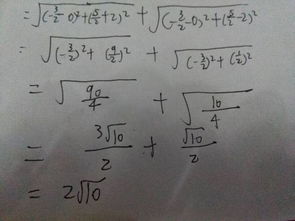 =√((-3/2 -0)²+(5/2+2)²) + √((-3/2-0)²+(5/2-2)²)
=√((-3/2)²+(9/2)²) + √((-3/2)²+(1/2)²)
=√(90/4) + √(10/4)
= 3√10/2 + √10/2
= 2√10